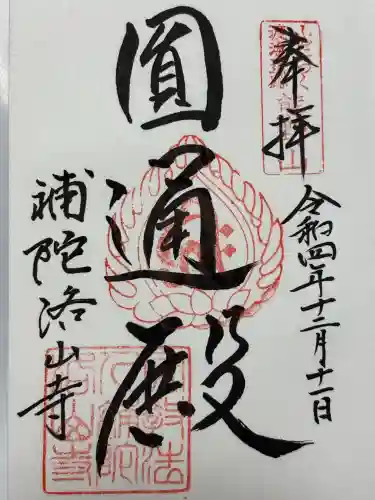 奉拝
令和四年十二月十一日
圓通殿
補陀洛山寺